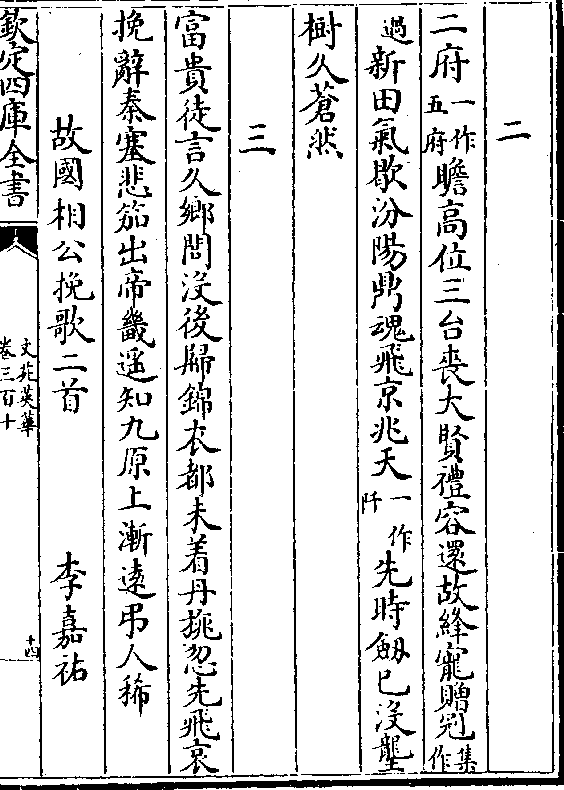 二
二府一作五府瞻高位三台喪大賢禮容還故絳寵贈冠集作
過新田氣歇汾陽鼎魂飛京兆天一作阡先時劔已沒壟
樹久蒼然
三
富貴徒言久鄉閭沒後歸錦衣都未着丹旐忽先飛哀
挽辭秦塞悲笳出帝畿遥知九原上漸逺弔人稀
故國相公挽歌二首 李嘉祐
欽定四庫全書
文苑英華
卷三百十
十四